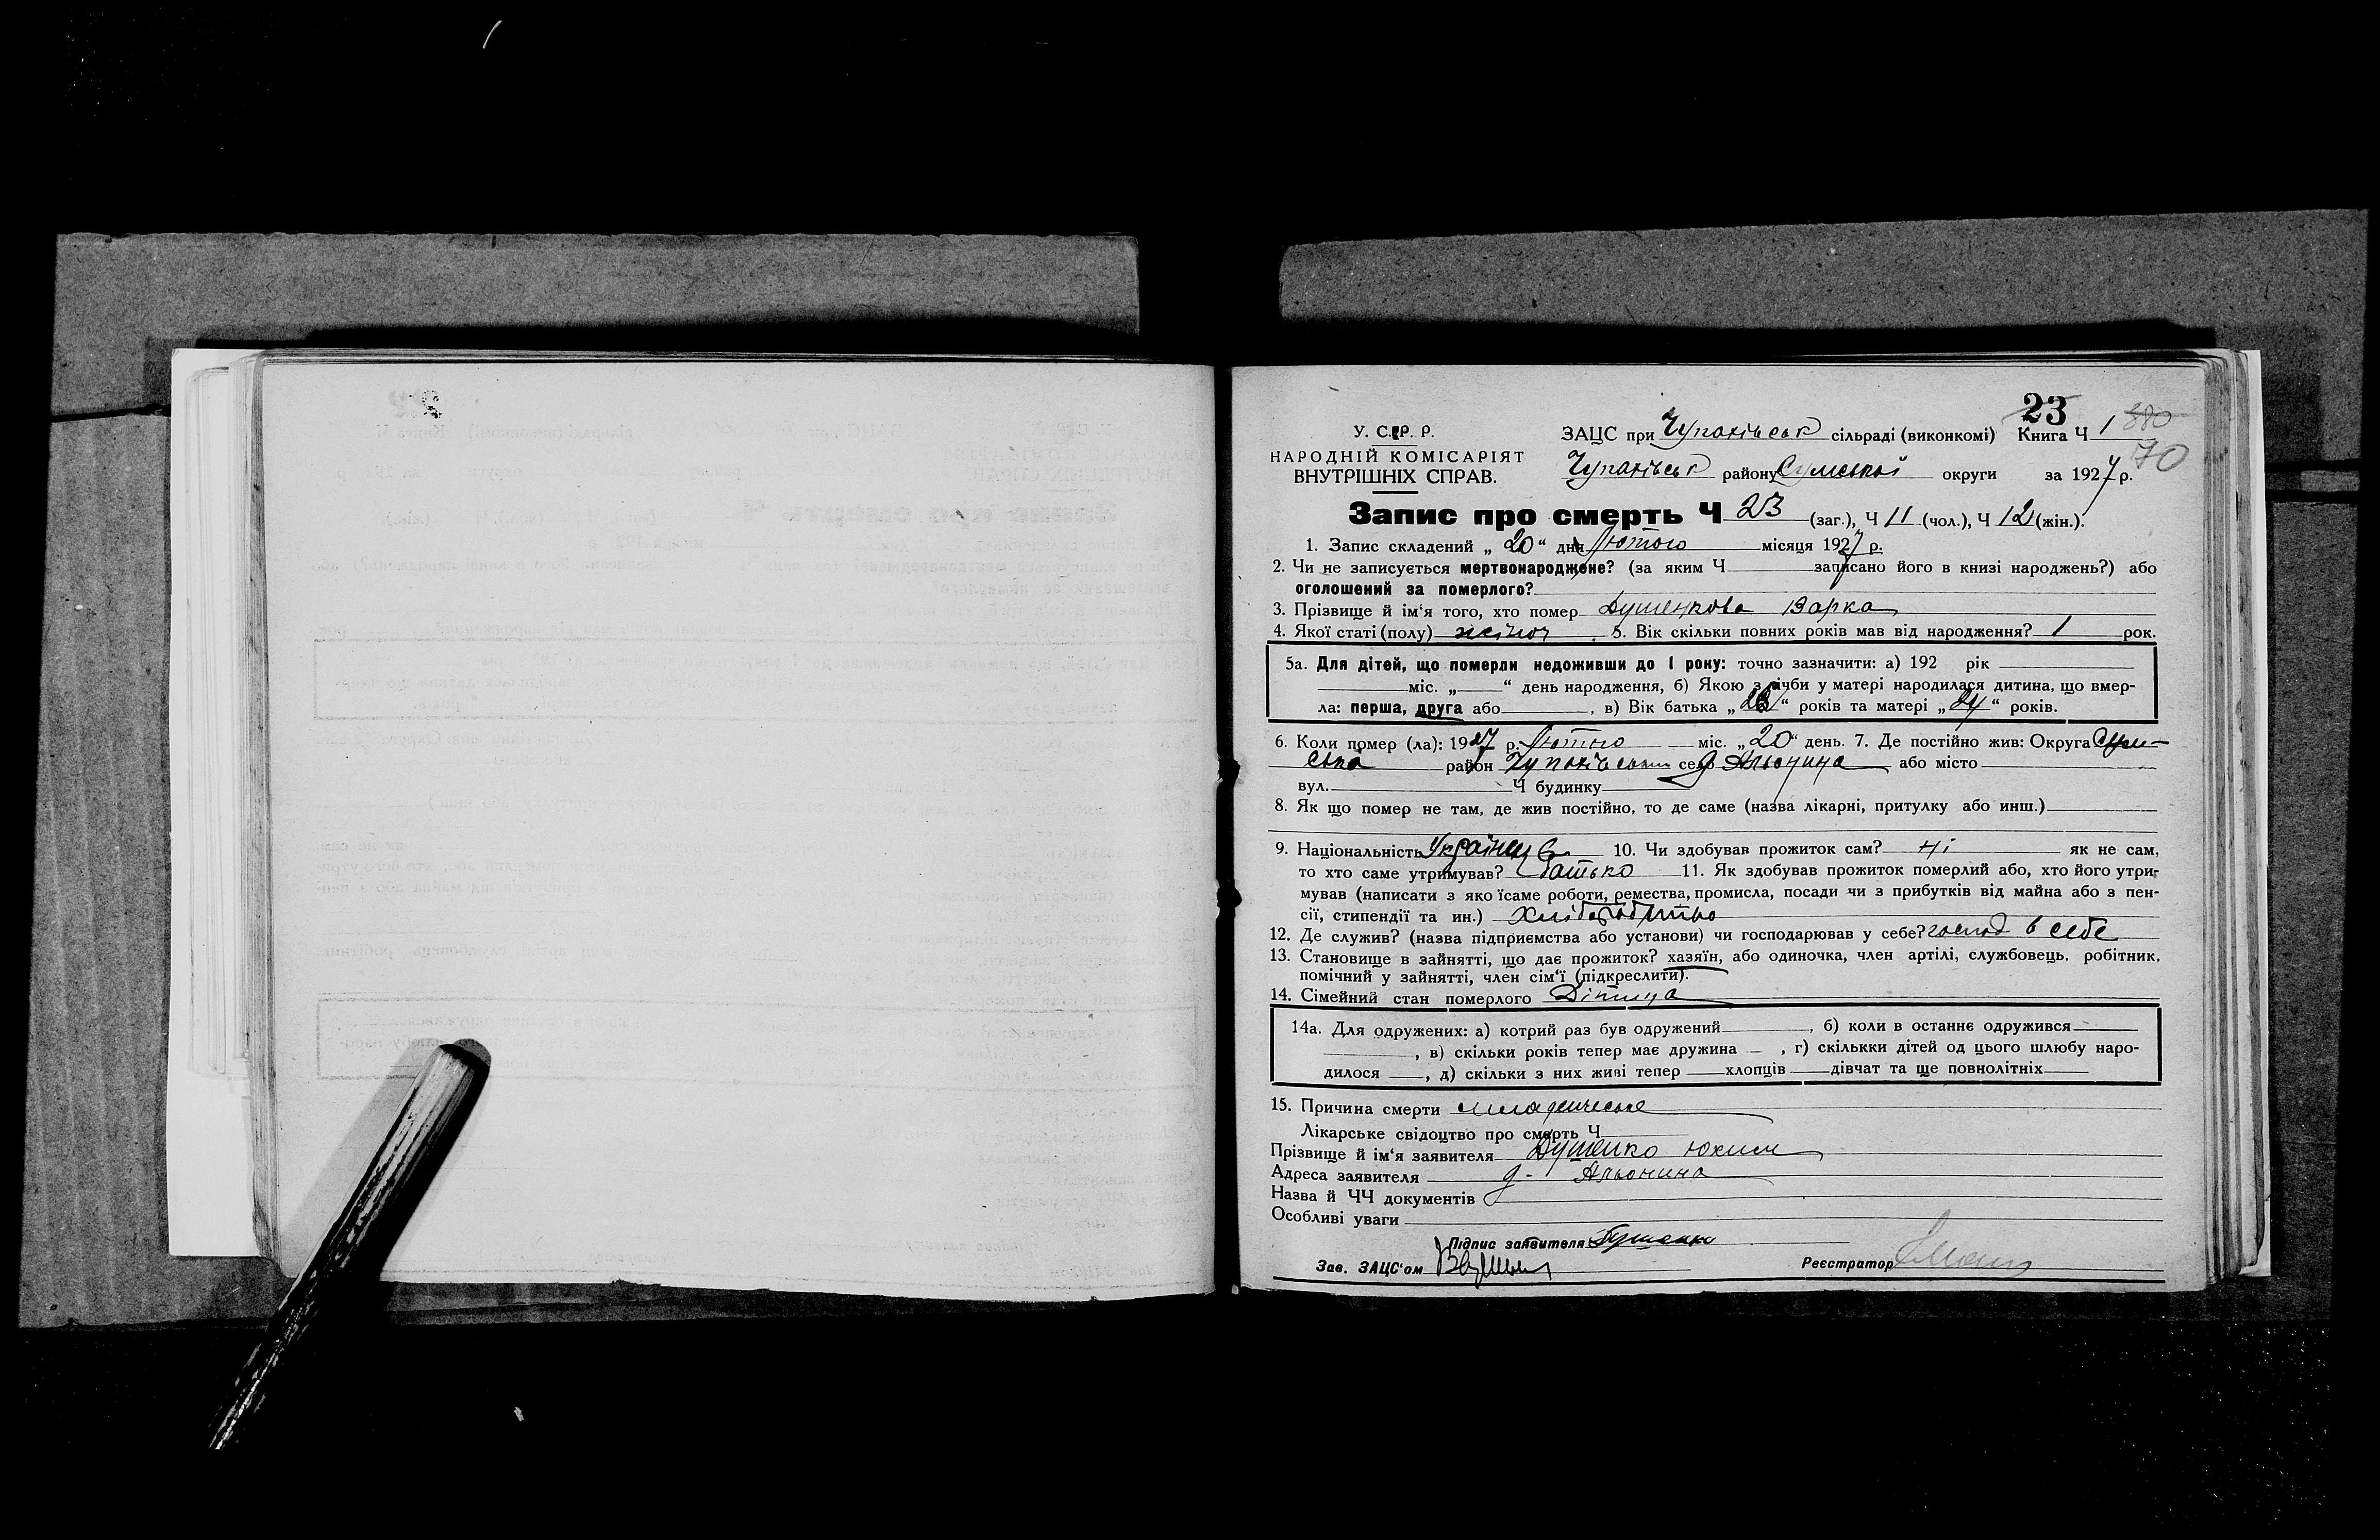 23
У. С. Р. Р.
НАРОДНІЙ КОМІСАРІЯТ
ВНУТРІШНІХ СПРАВ.
ЗАЦС при Чупахівськ сільраді (виконкомі) Книга Ч 1 380
70
Чупахівськ району Сумської округи за 1927 р.
Запис про смерть Ч 23 (заг.), Ч 11 (чол.), Ч 12 (жін.).
1. Запис складений „ 20 “ дня Лютого місяця 1927 р.
2. Чи не записується мертвонароджене? (за яким Ч записано його в книзі народжень?) або
оголошений за померлого?
3. Прізвище й ім‘я того, хто помер Душенкова Варка
4. Якої статі (полу) жіноч 5. Вік скільки повних років мав від народження? 1 рок.
5а. Для дітей, що померли недоживши до 1 року: точно зазначити: а) 192 рік
міс. „ “ день народження, б) Якою з лічби у матері народилася дитина, що вмер-
ла: перша, друга або , в) Вік батька „ “ років та матері „24“ років.
6. Коли помер (ла): 1927 р. Лютого міс. „20“ день. 7. Де постійно жив: Округа Сум-
ська район Чупахівськ село д Альонина або місто
вул. Ч будинку
8. Як що помер не там, де жив постійно, то де саме (назва лікарні, притулку або инш.)
9. Національність 10. Чи здобував прожиток сам? ні як не сам,
то хто саме утримував? батько 11. Як здобував прожиток померлий або, хто його утри-
мував (написати з яко їсаме роботи, ремества, промисла, посади чи з прибутків від майна або з пен-
сії, стипендії та ин.) Хліборобство
12. Де служив? (назва підприємства або установи) чи господарював у себе? господ в себе
13. Становище в зайнятті, що дає прожиток? хазяїн, або одиночка, член артілі, службовець, робітник,
помічний у зайнятті, член сім‘ї (підкреслити).
14. Сімейний стан померлого Дітина
14а. Для одружених: а) котрий раз був одружений , б) коли в останнє одружився
, в) скільки років тепер має дружина — , г) скількки дітей од цього шлюбу наро-
дилося , д) скільки з них живі тепер хлопців дівчат та ще повнолітніх
15. Причина смерти младенческе
Лікарське свідоцтво про смерть Ч
Прізвище й ім‘я заявителя Душенко Юхим
Адреса заявителя д- Альонина
Назва й ЧЧ документів
Особливі уваги
Підпис заявителя Душенко
Зав. ЗАЦС‘ом Реєстратор